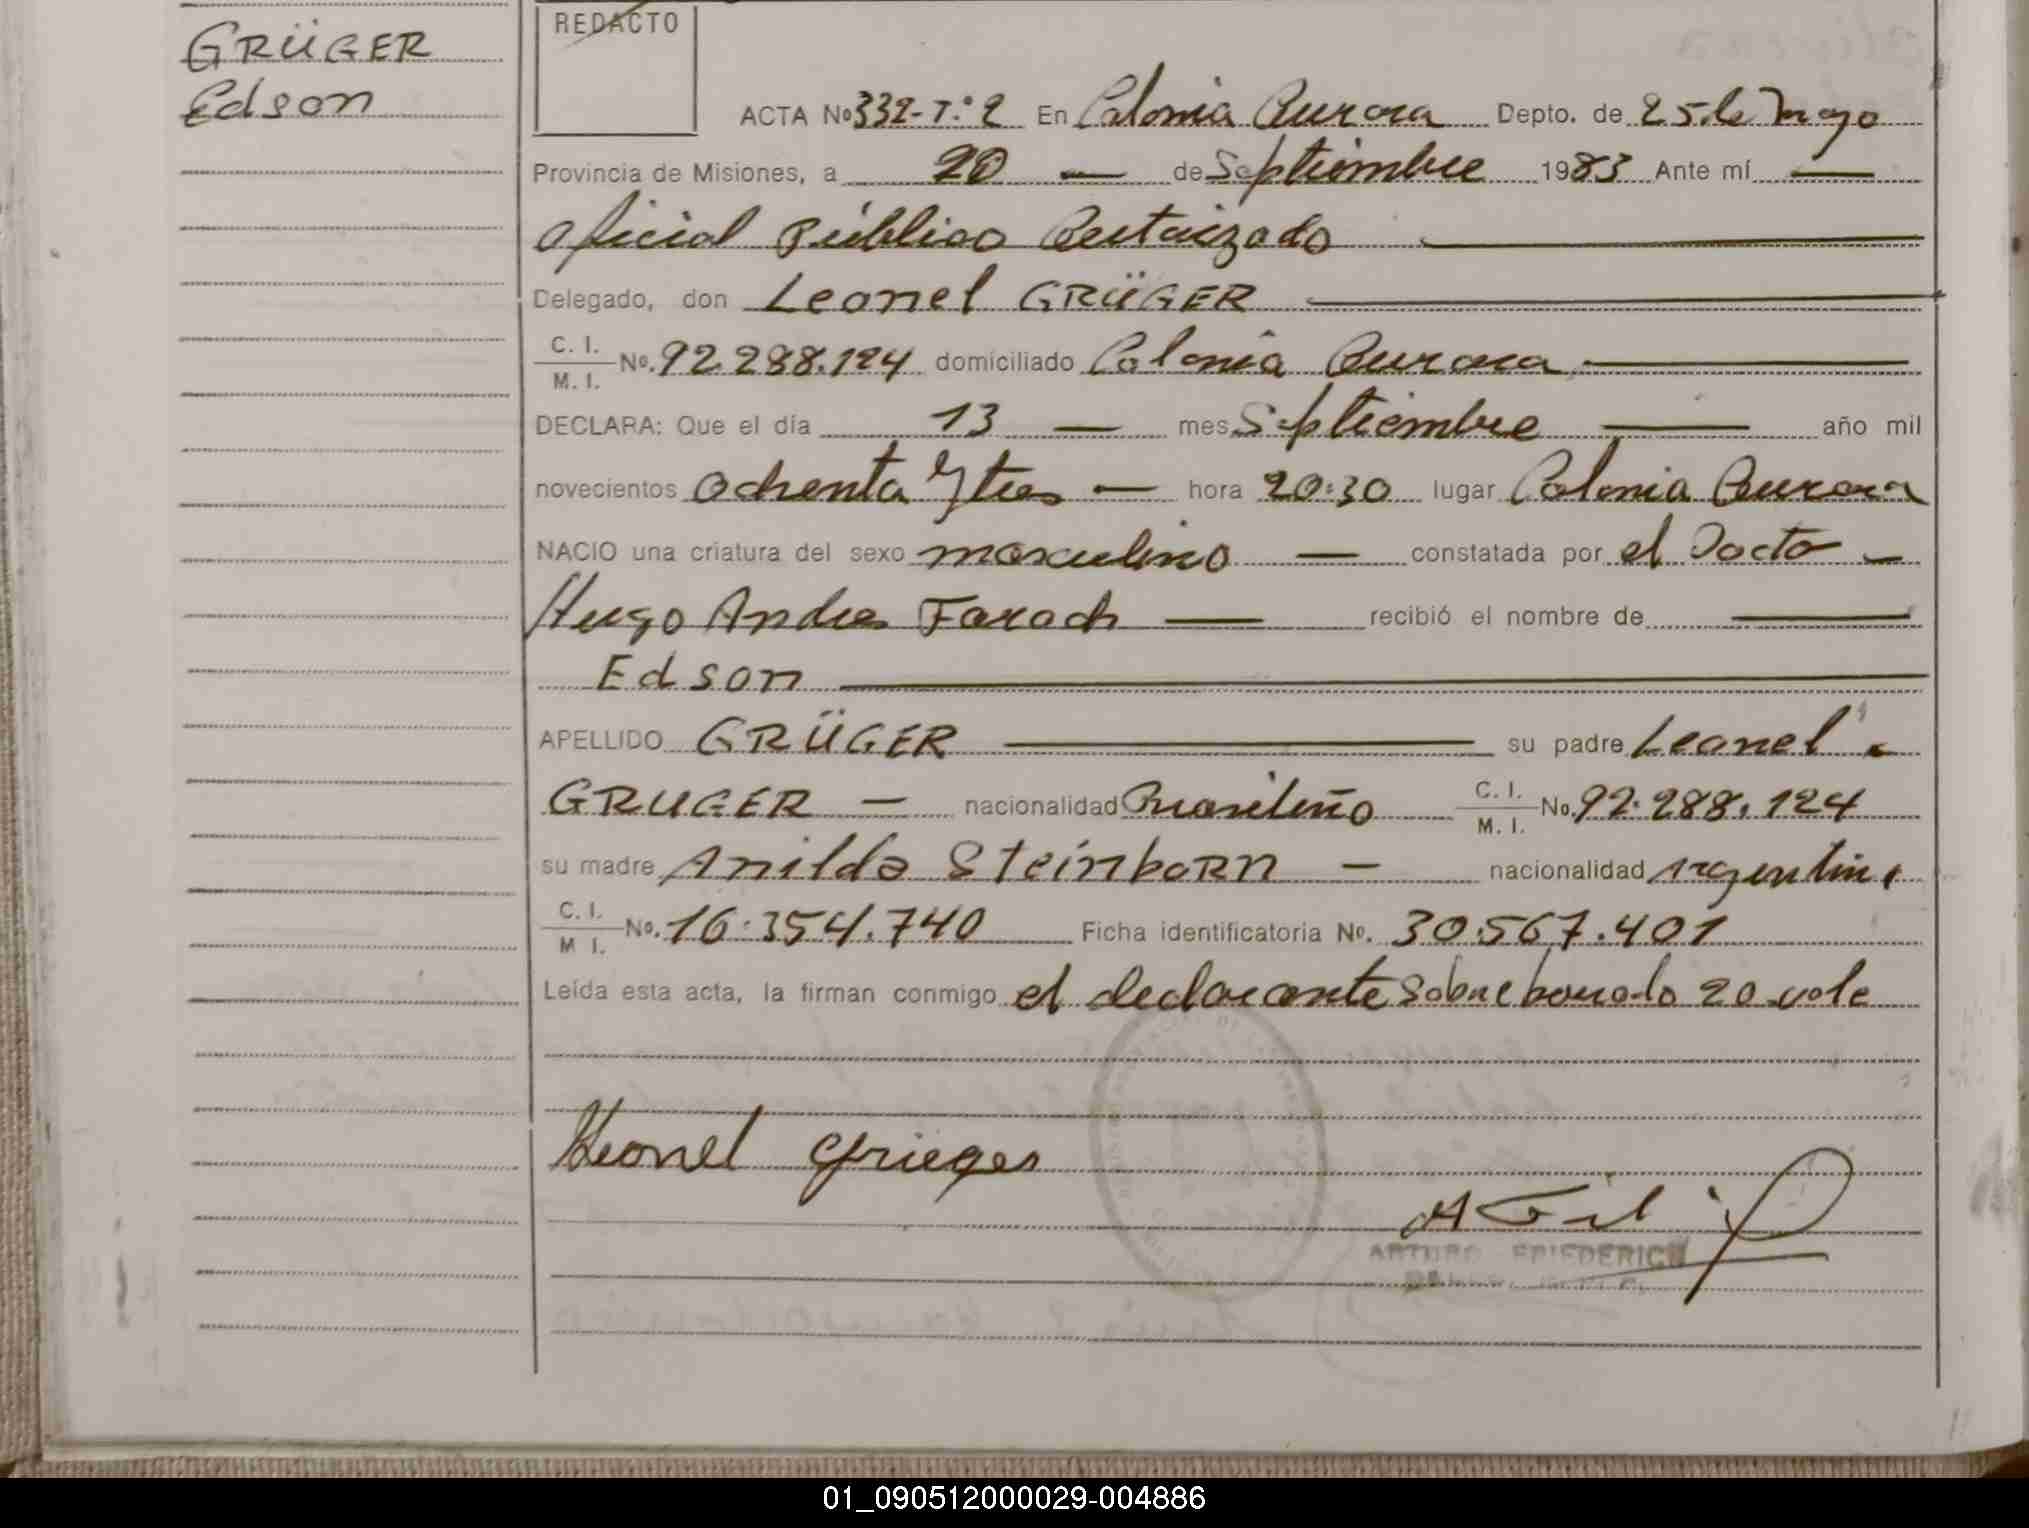 GRÜGER
Edson
REDACTO
ACTA No 332-Tº 2 En Colonia Aurora Depto. de 25 de Mayo
Provincia de Misiones, a 20 — de Septiembre 1983 Ante mí —
Oficial Público Autorizado —
Delegado, don Leonel GRÜGER —
C. I. M. I. No. 92.288.124 domiciliado Colonia Aurora —
DECLARA: Que el día 13 — mes Septiembre — año mil
novecientos ochenta y tres — hora 20:30 lugar Colonia Aurora
NACIO una criatura del sexo masculino — constatada por el Docto —
Hugo Andres Farach — recibió el nombre de —
Edson —
APELLIDO GRÜGER — su padre Leonel -
GRUGER — nacionalidad Brasileño C. I. M. I. No. 92.288.124
su madre Anilda Steinborn — nacionalidad Argentina
C. I. M I. No. 16.354.740 Ficha identificatoria No. 30.567.401
Leída esta acta, la firman conmigo el declarante sobreborrado 20 vale
Leonel Grieger
ARTURO FRIEDERICH
01_090512000029-004886